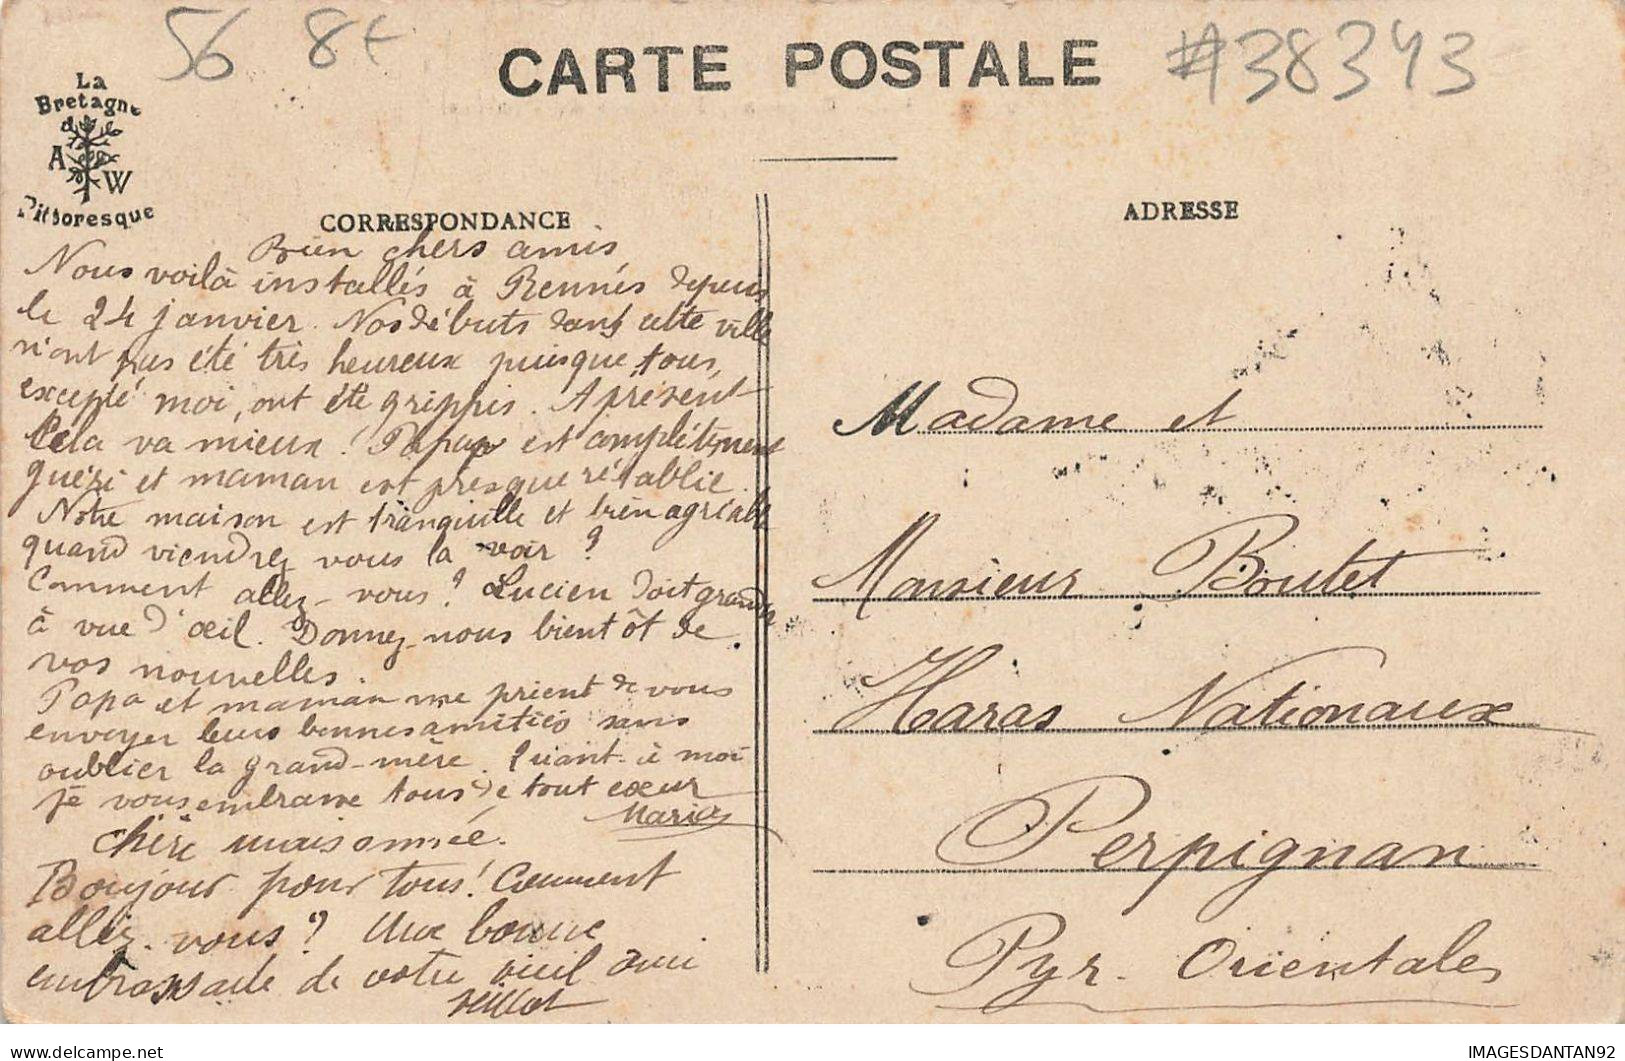 56 8t
#38343
CARTE POSTALE
La
Bretagne
A W
Pittoresque
CORRESPONDANCE
ADRESSE
Bien chers amis
Nous voilà installés à Rennes depuis
le 24 janvier. Nos débuts dans cette ville
n'ont pas été très heureux puisque, tous,
excepté moi, ont été grippés. A présent
Cela va mieux! Papa est complètement
guéri et maman est presque rétablie.
Notre maison est tranquille et bien agréable
quand viendrez vous la voir ?
Comment allez-vous ? Lucien doit grandir
à vue d'œil. Donnez-nous bientôt de
vos nouvelles.
Papa et maman me prient de vous
envoyer leurs bonnes amitiés sans
oublier la grand-mère. Quant-à moi
je vous embrasse tous de tout cœur
Maria
Chère maisonnée.
Bonjour pour tous! Comment
allez-vous ? Une bonne
embrassade de votre vieil ami
Madame et
Monsieur Boutet
Haras Nationaux
Perpignan
Pyr. Orientales
delcampe.net
IMAGESDANTAN92